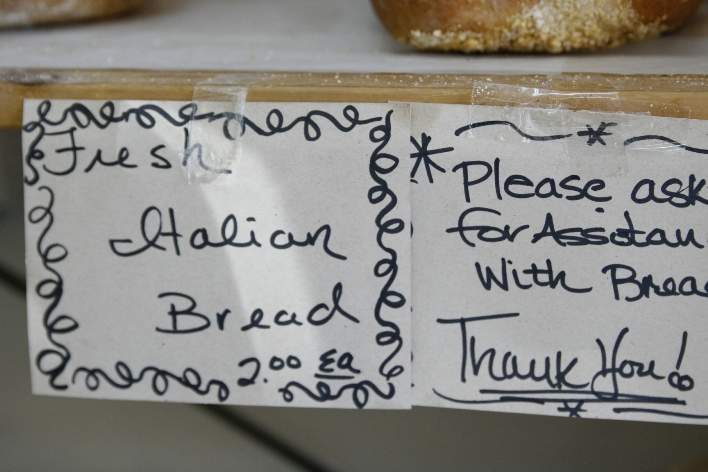 Fresh
Italian
Bread
2.00 Ea
*Please ask
for Assistan
With Brea
Thank You!